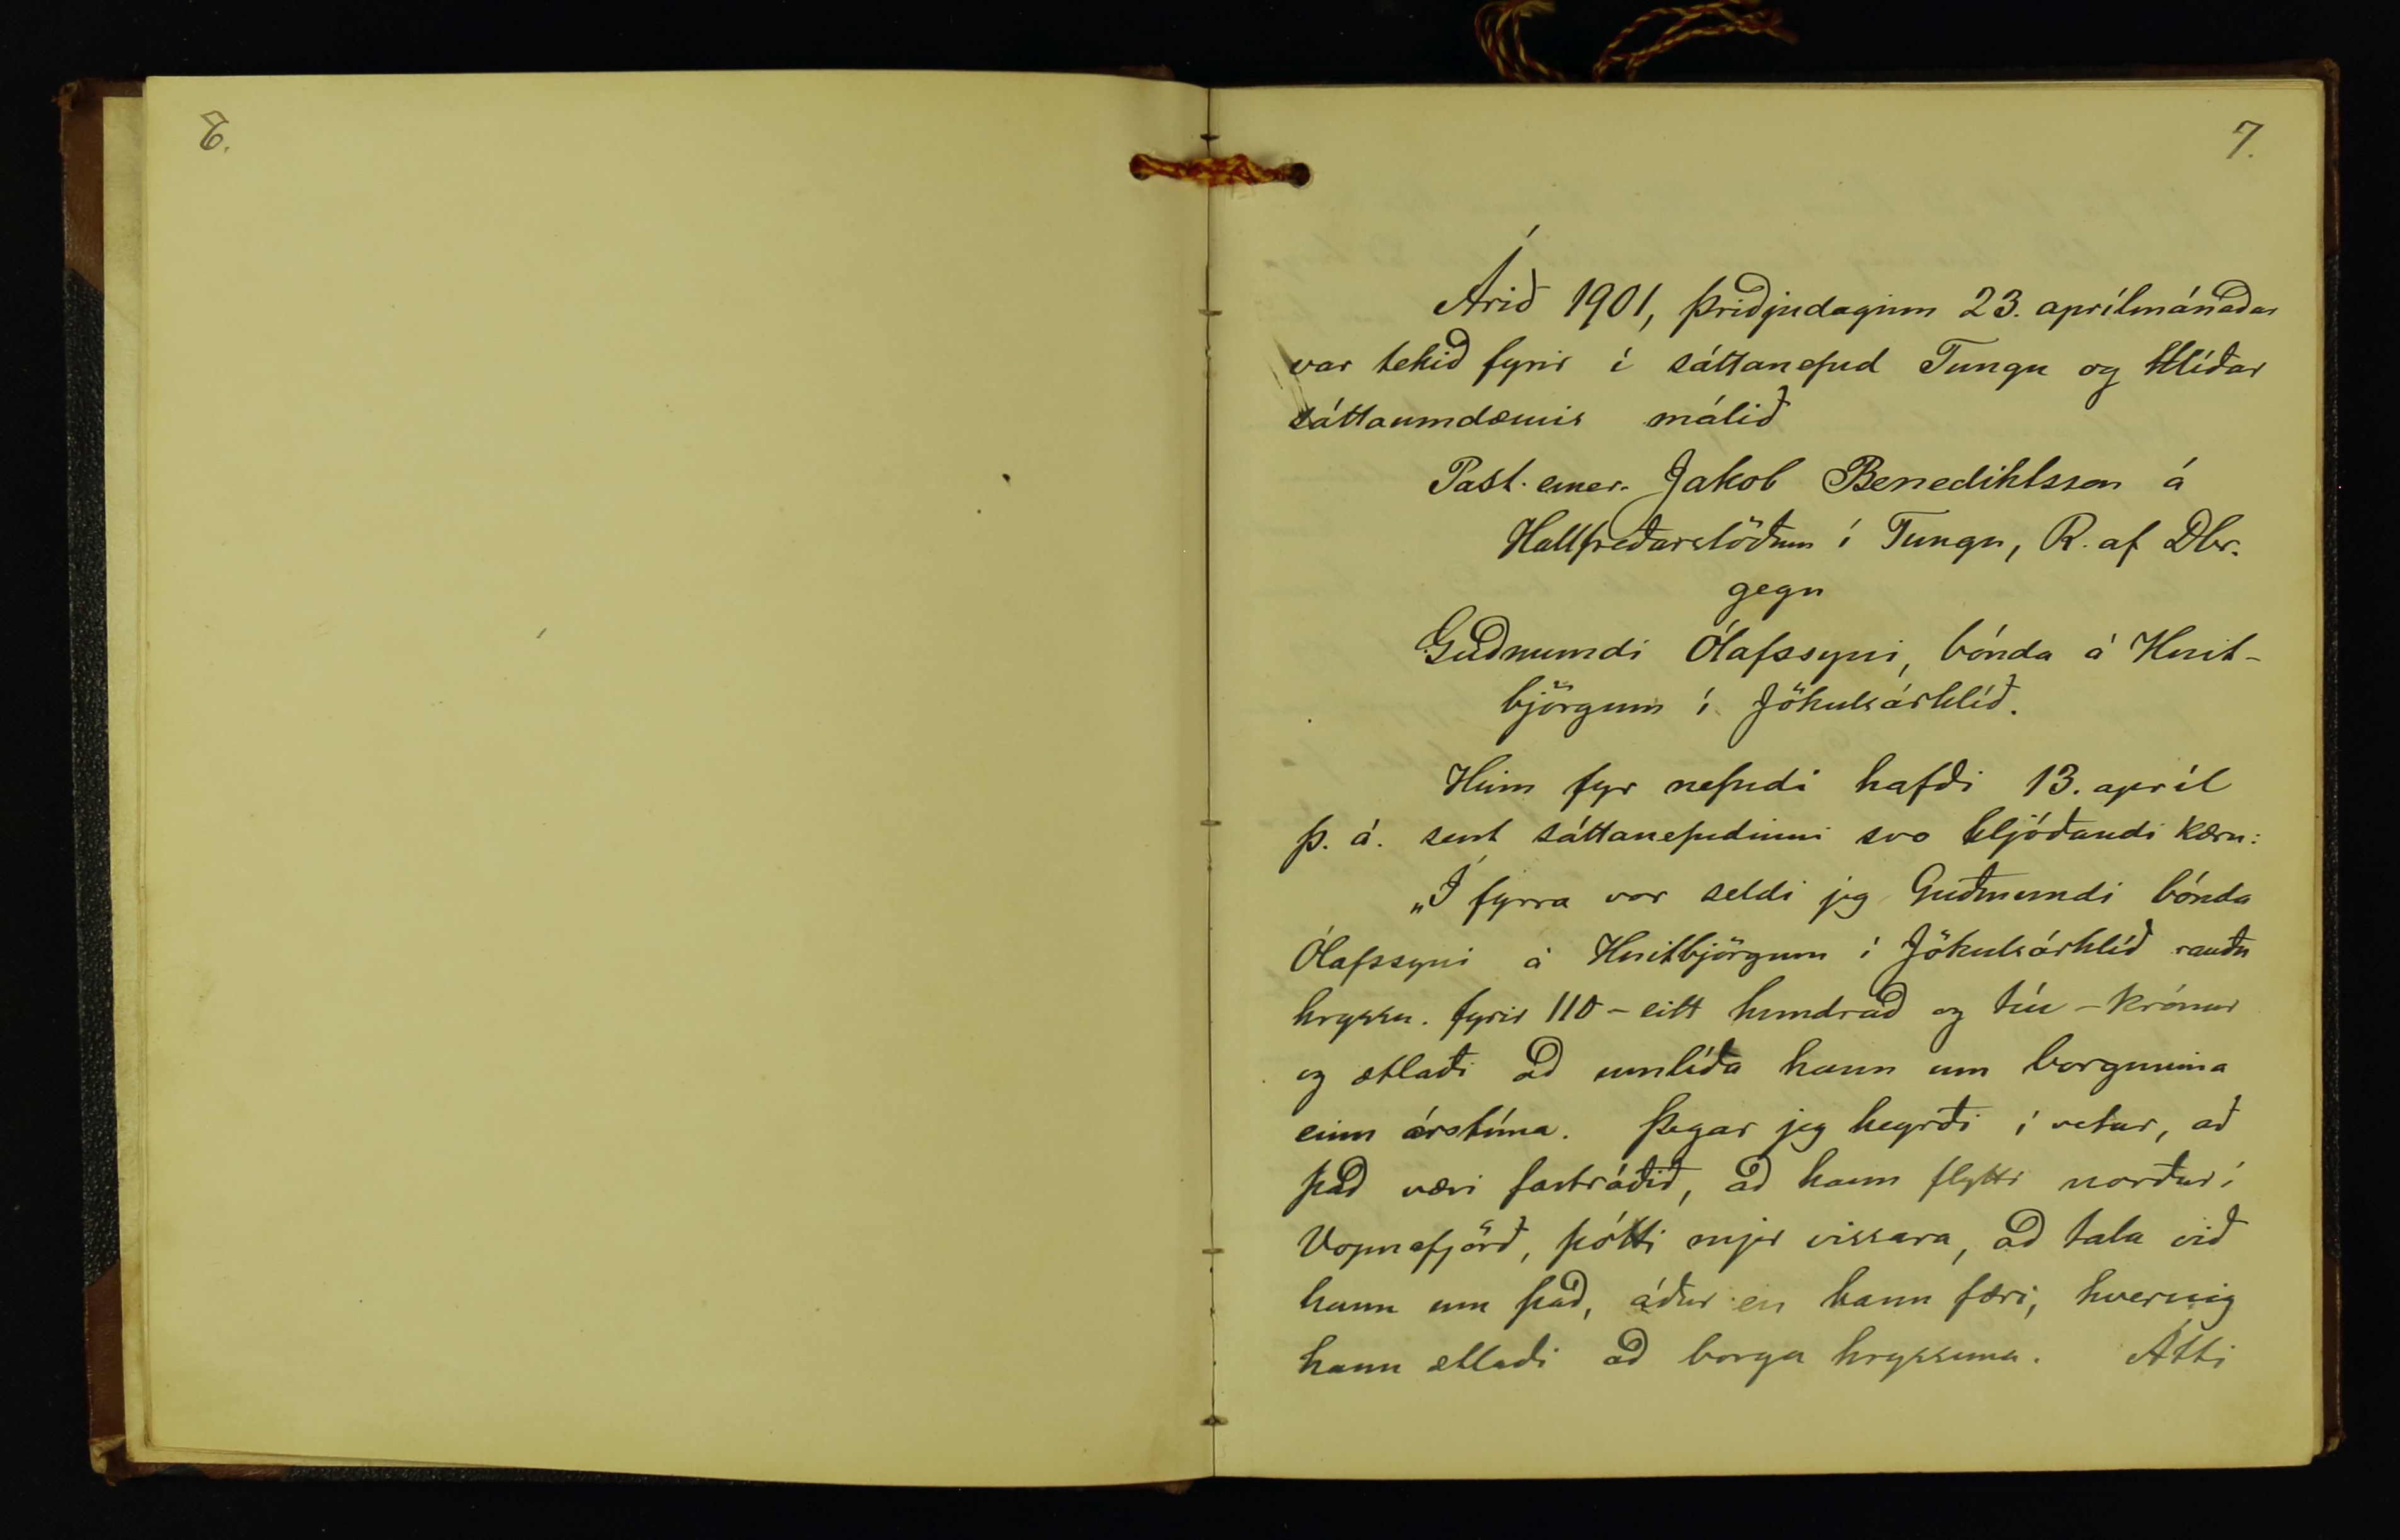 6.
7.
Árið 1901, þriðjudaginn 23. aprílmánaðar
var tekið fyrir í sáttanefnd Tungu og Hlíðar
sáttaumdæmis málið
Past. emer. Jakob Benediktsson á
Hallfreðarstöðum í Tungu, R. af Dbr.
gegn
Guðmundi Ólafssyni, bónda á Hnit-
björgum í Jökulsárhlíð.
Hinn fyr nefndi hafði 13. apríl
þ. á. sent sáttanefndinni svo hljóðandi kæru:
„Í fyrra vor seldi jeg Guðmundi bónda
Ólafssyni á Hnitbjörgum í Jökulsárhlíð rauða
hryssu. fyrir 110 - eitt hundrað og tíu - krónur
og ætlaði að umlíða hann um borgunina
einn árstíma. Þegar jeg heyrði í vetur, að
það væri fastráðið, að hann flytti norður í
Vopnafjörð, þótti mjer vissara, að tala við
hann um það, áður en hann færi, hvernig
hann ætlaði að borga hryssuna. Átti